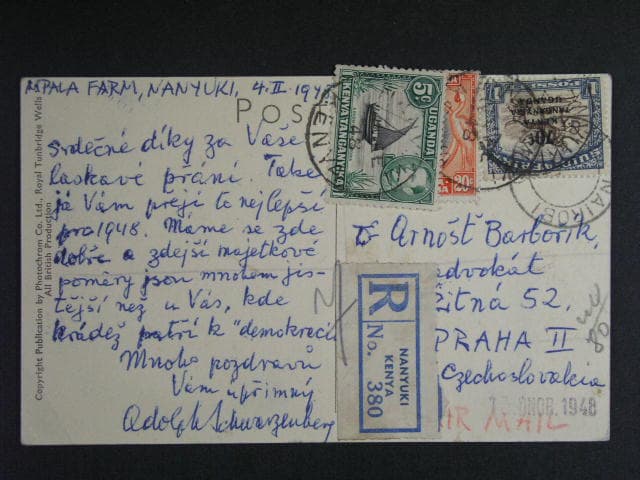 MPALA FARM, NANYUKI, 4.II.194
POS
Srdečné díky za Vaše
laskavé přání. Také
já Vám přeji to nejlepší
pro 1948. Máme se zde
dobře a zdejší majetkové
poměry jsou mnohem jis-
tější než u Vás, kde
krádež patří k "demokracii
Mnoho pozdravů
Vám upřímný
Adolph Schwarzenberg
Copyright Publication by Photochrom Co. Ltd., Royal Tunbridge Wells
All British Production
KENYA TANGANYIKA
UGANDA
5c
20c
70c
TANGANYIKA
UGANDA
KENYA
NAIROBI
Arnošt Barbořík,
advokát
Žitná 52.
PRAHA II
Czechoslovakia
R
No.
NANYUKI
KENYA
380
ÚNOR. 1948
AIR MAIL